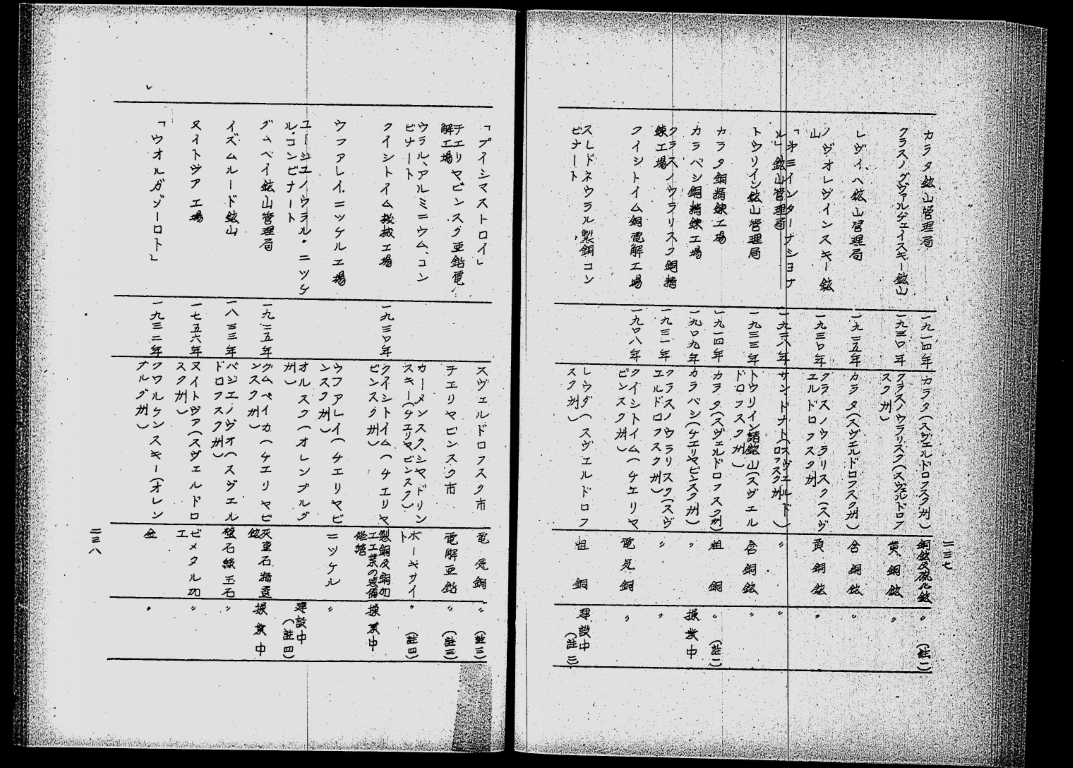 二三七
カラタ鉱山管理局 一九一四年 カラタ(スヴェルドロフスク州) 銅鉱及硫化鉱 〃 (註一)
クラスノグヴァルヂェイスキー鉱山 一九三〇年 クラスノウラリスク(スヴェルドロフスク州) 黄銅鉱 〃
レヴィハ鉱山管理局 一九二五年 カラタ(スヴェルドロフスク州) 含銅鉱 〃
ノヴオレヴインスキー鉱山 一九三〇年 クラスノウラリスク(スヴエルドロフスク州) 黄銅鉱 〃
「第三インターナショナル」鉱山管理局 一九二八年 サンドナト(スヴェルドロフスク州) 〃 〃
トウリイン鉱山管理局 一九三三年 トウリイン諸鉱山(スヴエルドロフスク州) 含銅鉱 〃
カラタ銅精錬工場 一九一四年 カラタ(スヴェルドロフスク州) 粗銅 〃 (註二)
カラバシ銅精錬工場 一九〇九年 カラバシ(チエリヤビンスク州) 操業中
クラスノウラリスク銅精錬工場 一九三一年 クラスノウラリスク(スヴエルドロフスク州) 〃 〃
クイシトイム銅電解工場 一九〇八年 クイシトイム(チエリヤビンスク州) 電気銅 〃
スレドネウラル製銅コンビナート レウダ(スヴエルドロフスク州) 粗銅 建設中 (註三)
「プイシマストロイ」 スヴェルドロフスク市 電気銅 〃 (註三)
チエリヤビンスク亜鉛電解工場 チエリヤビンスク市 電解亜鉛 〃 (註三)
ウラル、アルミニウム、コンビナート カーメンスク、シヤドリンスキー(チエリヤビンスク) ボーキサイト 〃 (註四)
クイシトイム機械工場 一九三〇年 クイシトイム(チエリヤビンスク州) 製銅及銅加工工業の設備 操業中
ウフアレイニッケル工場 ウフアレイ(チエリヤビンスク州) ニツケル 〃
ユージユノウラル・ニツケル・コンビナート オルスク(オレンブルグ州) 〃 建設中 (註四)
グムベイ鉱山管理局 一九三五年 クムベイカ(チエリヤビンスク州) 灰重石精選鉱 操業中
イズムルード鉱山 一八三三年 バジエノヴオ(スヴエルドロフスク州) 緑玉石 〃
ヌイトヴア工場 一七五六年 ヌイトヴア(スヴェルドロフスク州) ビメタル加工 〃
「ウオルガゾーロト」 一九三二年 クワルケンスキー(オレンブルグ州) 金 〃
二三八